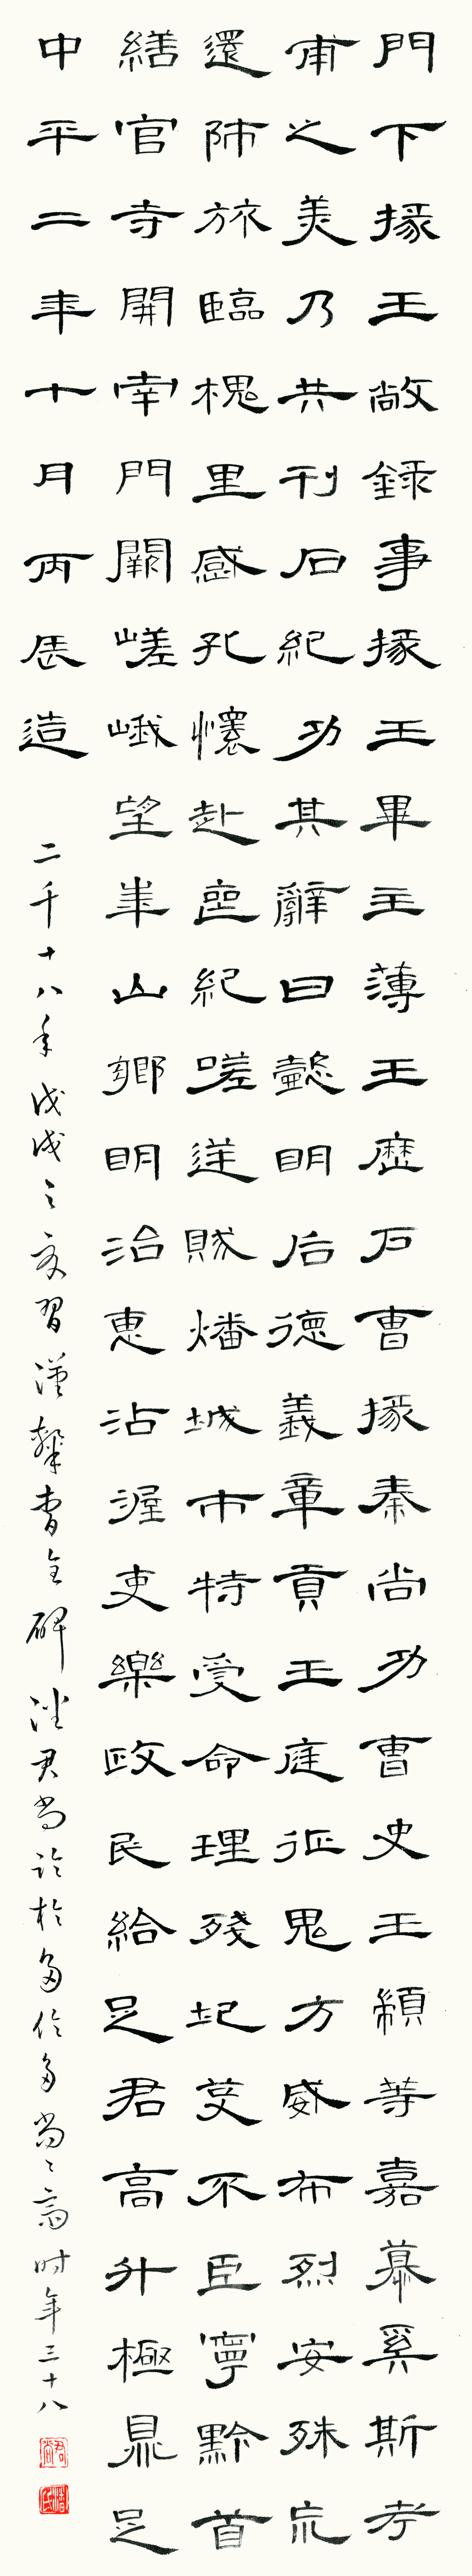 門下掾王敞録事掾王畢主薄王歷户曹掾秦尚功曹史王顓等嘉慕奚斯考
甫之美乃共刊石紀功其辭曰懿明后德義章貢王庭征鬼方威布烈安殊巟
還師旅臨槐里感孔懷赴喪紀嗟逆賊燔城市特受命理殘圮芟不臣寧黔首
繕官寺開南門闕嵯峨望華山鄉明治惠沾渥吏樂政民給足君高升極鼎足
中平二年十月丙辰造
二千十八年戊戌之夏習漢隸曹全碑君尚於多倫多尚々齋時年三十八